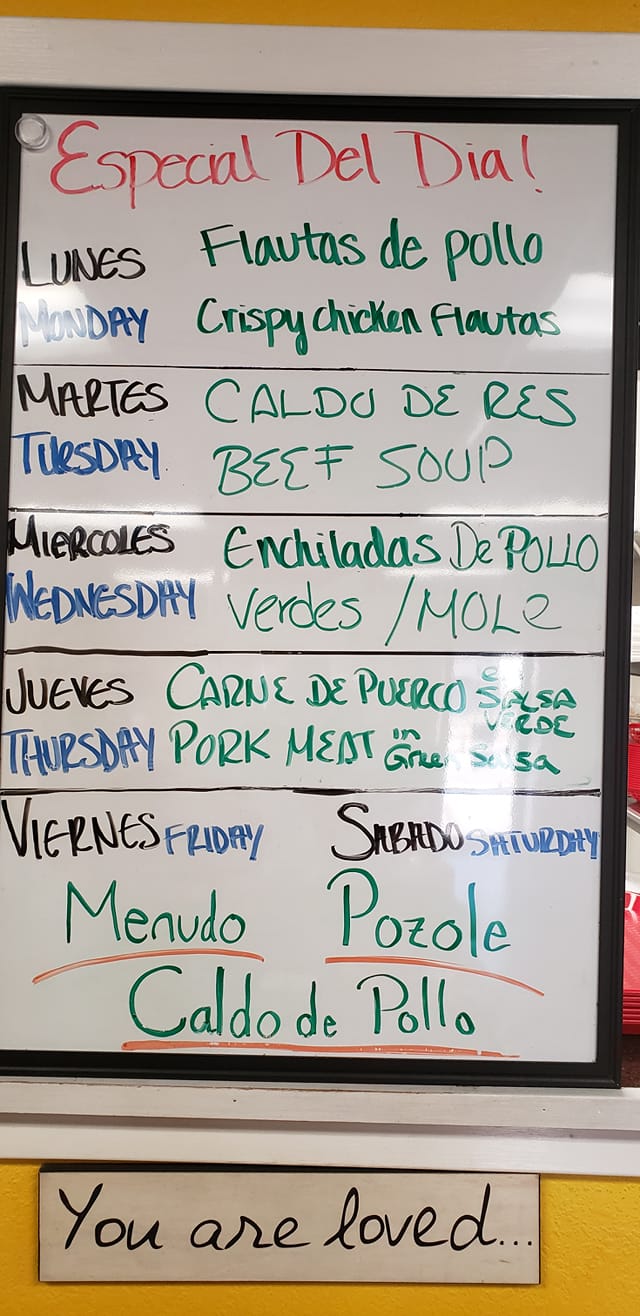 Especial Del Dia!
LUNES Flautas de pollo
MONDAY Crispy chicken Flautas
MARTES CALDO DE RES
TUESDAY BEEF SOUP
MIERCOLES Enchiladas De POLLO
WEDNESDAY Verdes / MOLE
JUEVES CARNE DE PUERCO e SALSA VERDE
THURSDAY PORK MEAT in Green Salsa
VIERNES FRIDAY SABADO SATURDAY
Menudo Pozole
Caldo de Pollo
You are loved...